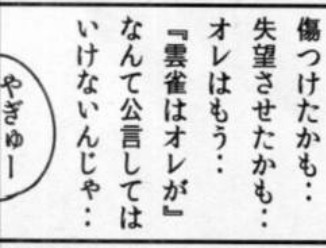 傷つけたかも‥
失望させたかも‥
オレはもう‥
『雲雀はオレが』
なんて公言しては
いけないんじゃ‥
やぎゅー